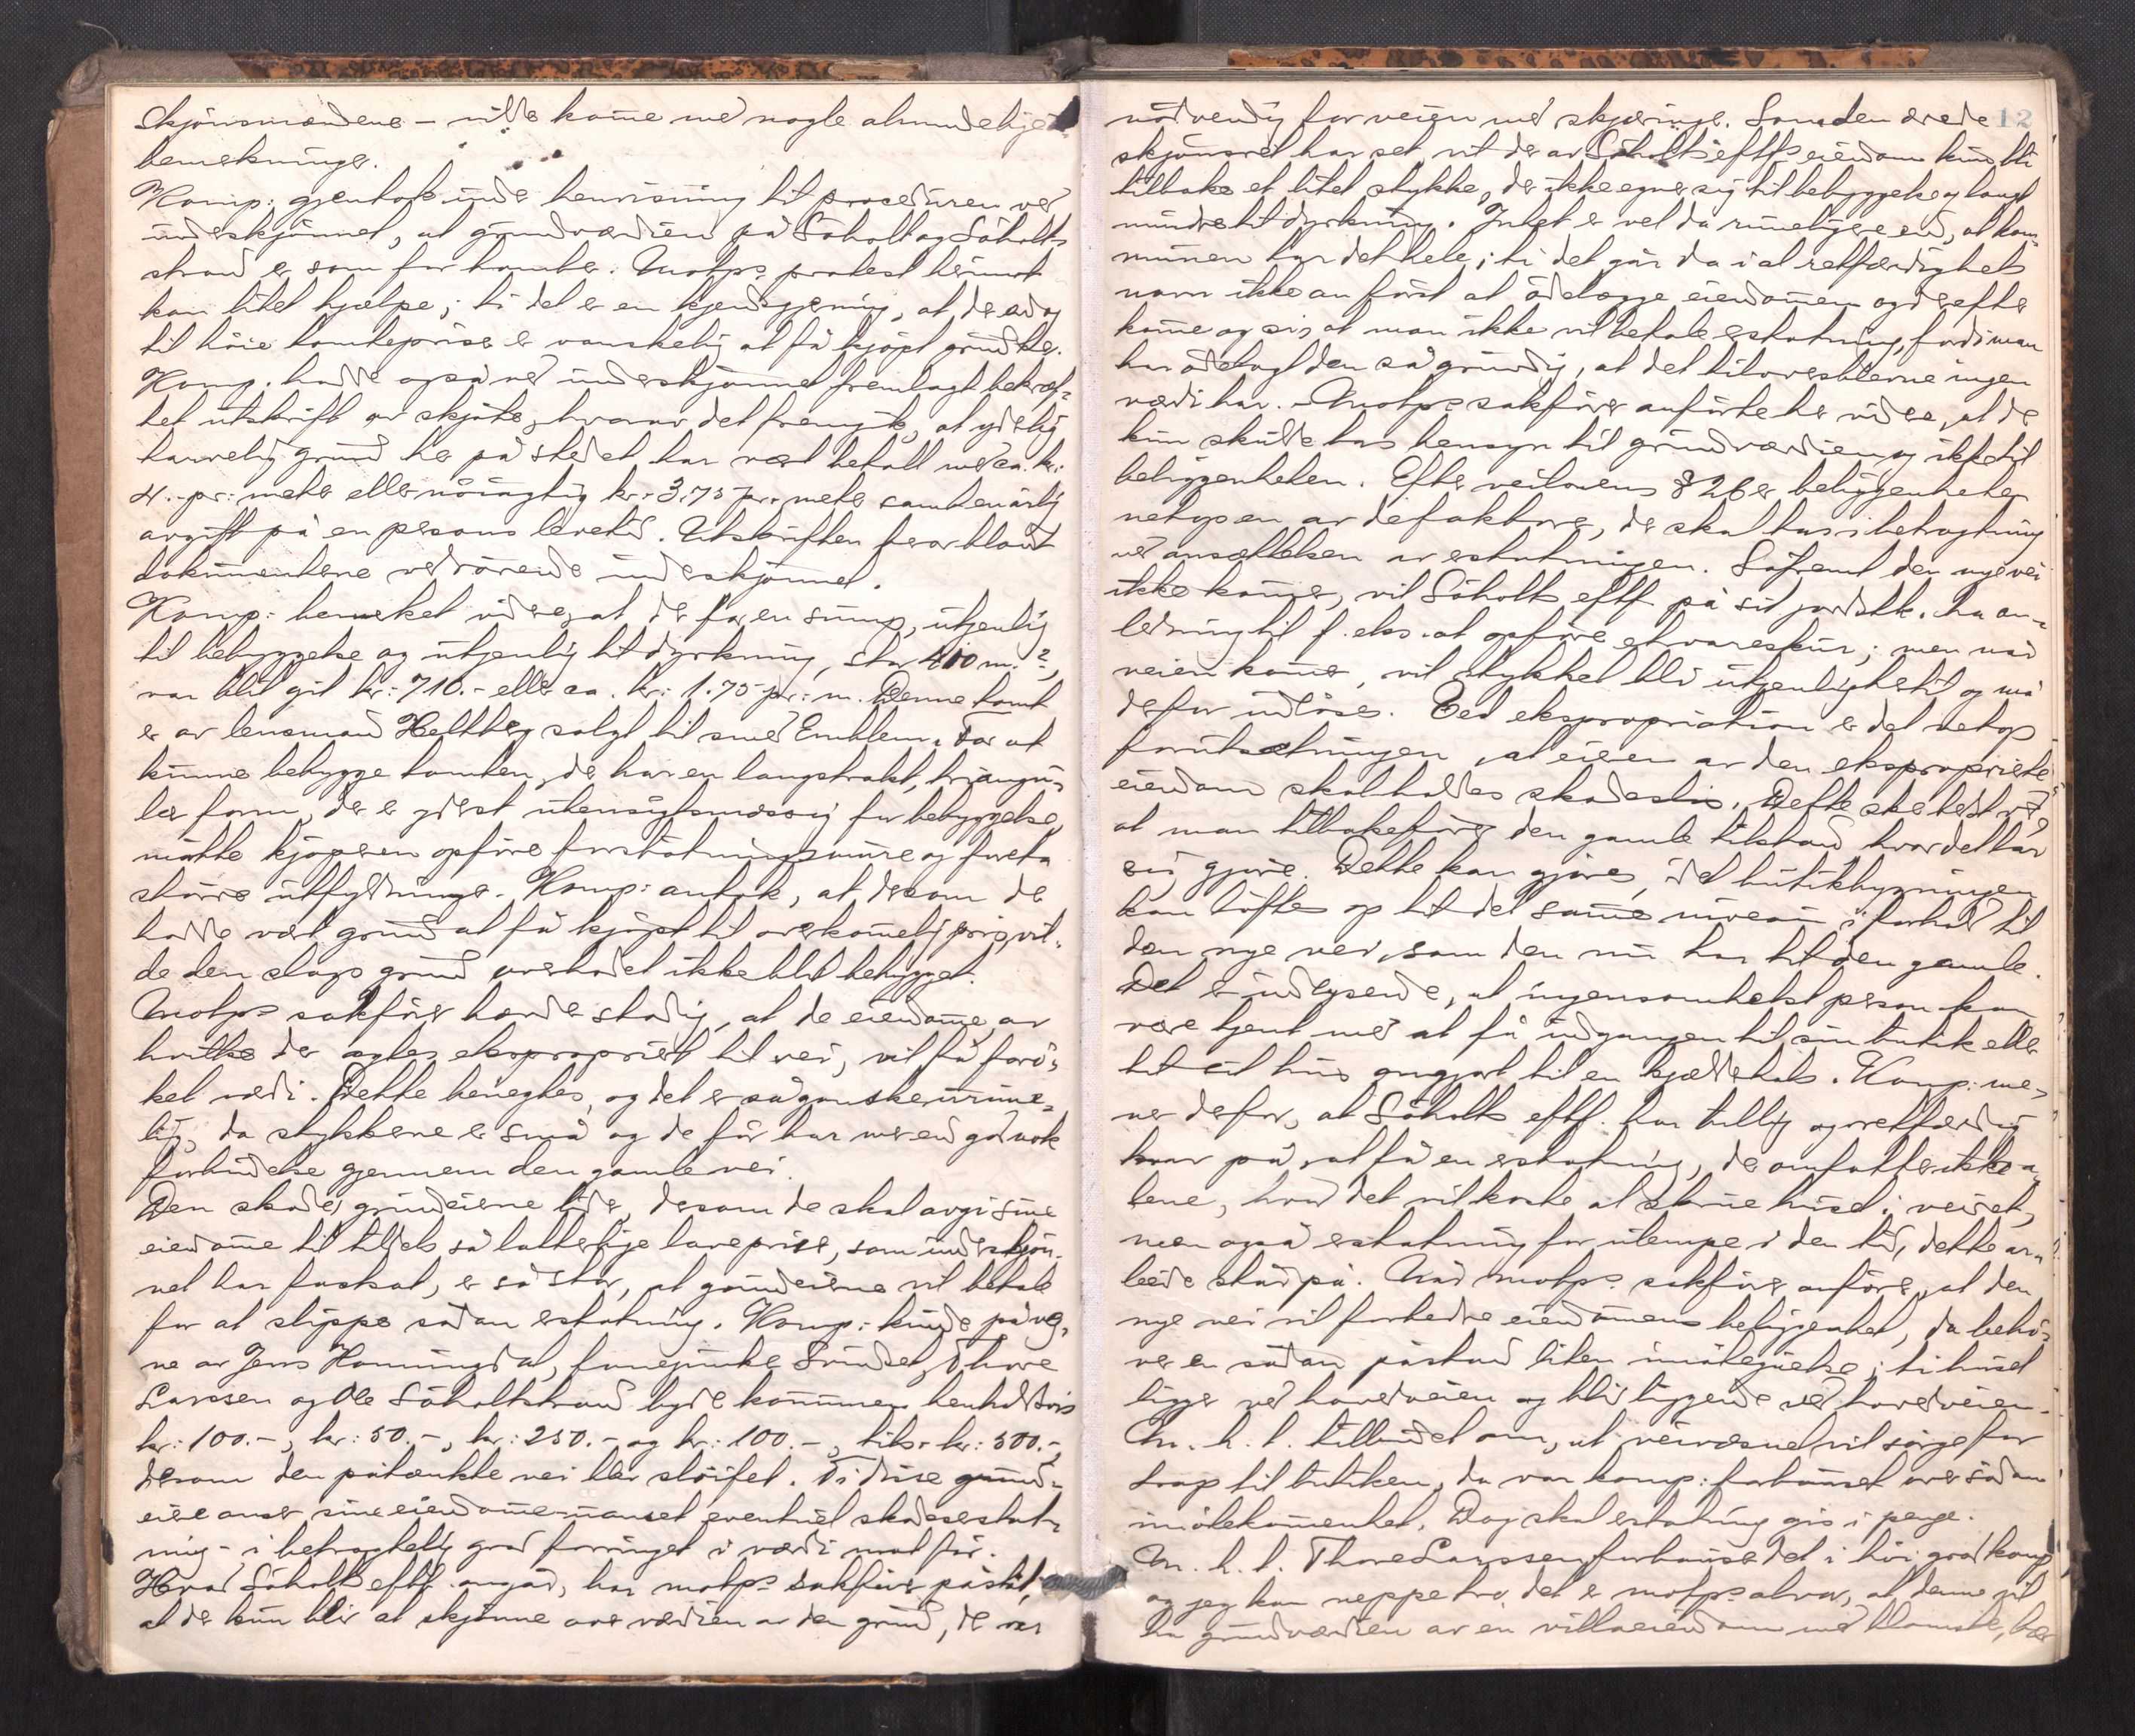 skjønsmændene – vilde komme med nogle almindelige
bemerkninger.
Komp: gjentok under henvisning til proceduren ved
underskjønnet, at grundværdien på Søholt og Søholt-
strand er som for tomter. Motp.s protest herimot
kan litet hjælpe; ti det er en kjendsgjerning, at der endog
til høie tomtepriser er vanskelig at få kjøpt grund her.
Komp. hadde også ved underskjønnet fremlagt bekræf-
tet utskrift av skjøte, hvorav det fremgik, at ydelig
tarvelig grund her på stedet har vært betalt med ca. kr.:
4.- pr. meter eller nøiagtig kr. 3,75 pr. meter samt en årlig
avgift på en persons levetid. Utskriften er blandt
dokumentene vedrørende underskjønnet.
Komp: bemerket videre, at der for en sump, utjenlig
til bebyggelse og utjenlig til dyrkning, stor 400 m.²,
var blit git kr: 710.- eller ca. kr: 1.75 pr. m. Denne tomt
er av lensmand Heltberg solgt til smed Emblem. For at
kunne bebygge tomten, der har en langstrakt, triangu-
lær form, der er yderst uhensigtsmæssig for bebyggelse,
måtte kjøperen opføre forstøtningsmure og foreta
større utfyldninger. Komp: antok, at dersom der
hadde vært grund at få kjøpt til overkommelig pris, vil-
de den slags grund overhodet ikke blit bebygget.
Motp.s sakfører hævder stadig, at de eiendomme, av
hvilke der agtes ekspropriert til vei, vil få forø-
ket værdi. Dette benegtes, og det er så ganske urime-
lig, da stykkerne er små og de før har mer end god nok
forbindelse gjennem den gamle vei.
Den skade, grundeierne lider, dersom de skal avgi sine
eiendomme til tildels så latterlige lave priser, som underskjøn-
net har fastsat, er så stor, at grundeierne vil betale
for at slippe sådan erstatning. Komp: kunde på veg-
ne av Jens Honningdal, fanejunker Svindset, Thore
Larssen og Ole Søholtstrand byde kommunen henholdsvis
kr: 100.-, kr: 50.-, kr: 250.- og kr: 100.-, tils. kr: 500.-,
dersom den påtænkte vei blir sløifet. Ti disse grund-
eiere anser sine eiendomme – uanset eventuel skadeserstat-
ning – i betragtelig grad forringet i værdi mot før.
Hvad Søholts eftf. angår, har motp.s sakfører påståt,
at der kun blir at skjønne over værdien av den grund, der var
12
nødvendig for veien med skjæringer. Som den ærede
skjønsret har set, vil der av Søholts eftfs eiendom kun bli
tilbake et litet stykke, der ikke egner sig til bebyggelse og langt
mindre til dyrkning. Intet er vel da rimeligere end, at kom-
munen tar det hele; ti det går da i al retfærdighets
navn ikke an først at ødelægge eiendommen og derefter
komme og si, at man ikke vil betale erstatning, fordi man
har ødelagt den så grundig, at det tiloversblevne ingen
værdi har. – Motp.s sakfører anførte her videre, at der
kun skulde tas hensyn til grundværdien og ikke til
beliggenheten. Efter veilovens § 26 er beliggenheten
netop en av de faktorer, der skal tas i betragtning
ved ansættelsen av erstatningen. Såfremt den nye vei
ikke kommer, vil Søholts eftf på sit jordstk. ha an-
ledning til f. eks. at opføre et vareskur; men når
veien kommer, vil stykket bli utjenlig hertil og må
derfor indløses. Ved ekspropriation er det netop
forutsætningen, at eieren av den eksproprierte
eiendom skal holdes skadesløs. Dette sker bedst ved,
at man tilbakefører den gamle tilstand hvor det lar
sig gjøre. Dette kan gjøres, idet butikbygningen
kan løftes op til det samme niveau i forhold til
den nye vei, som den nu har til den gamle.
Det er indlysende, at ingensomhelst person kan
være tjent med at få indgangen til sin butik eller
til sit hus omgjort til en kjælderhals. Komp: me-
ner derfor, at Søholts eftf. har billig og retfærdig
krav på at få en erstatning, der omfatter ikke a-
lene, hvad det vil koste at skrue huset i veiret,
men også erstatning for ulempe i den tid, dette ar-
beide står på. Når motp.s sakfører anfører, at den
nye vei vil forbedre eiendommens beliggenhet, da behø-
ver en sådan påstand liten imøtegåelse; ti huset
ligger ved hovedveien og blir liggende ved hovedveien.
M. h. t. tilbudet om, at veivæsenet vil sørge for
trap til butiken, da var komp: forbauset over sådan
imøtekommenhet. Dog skal erstatning gis i penge.
M. h. t. Thore Larssen forbauser det i høi grad komp.
og jeg kan neppe tro, det er motp.s alvor, at denne vil
ha grundværdien av en villaeiendom med blomster, bær